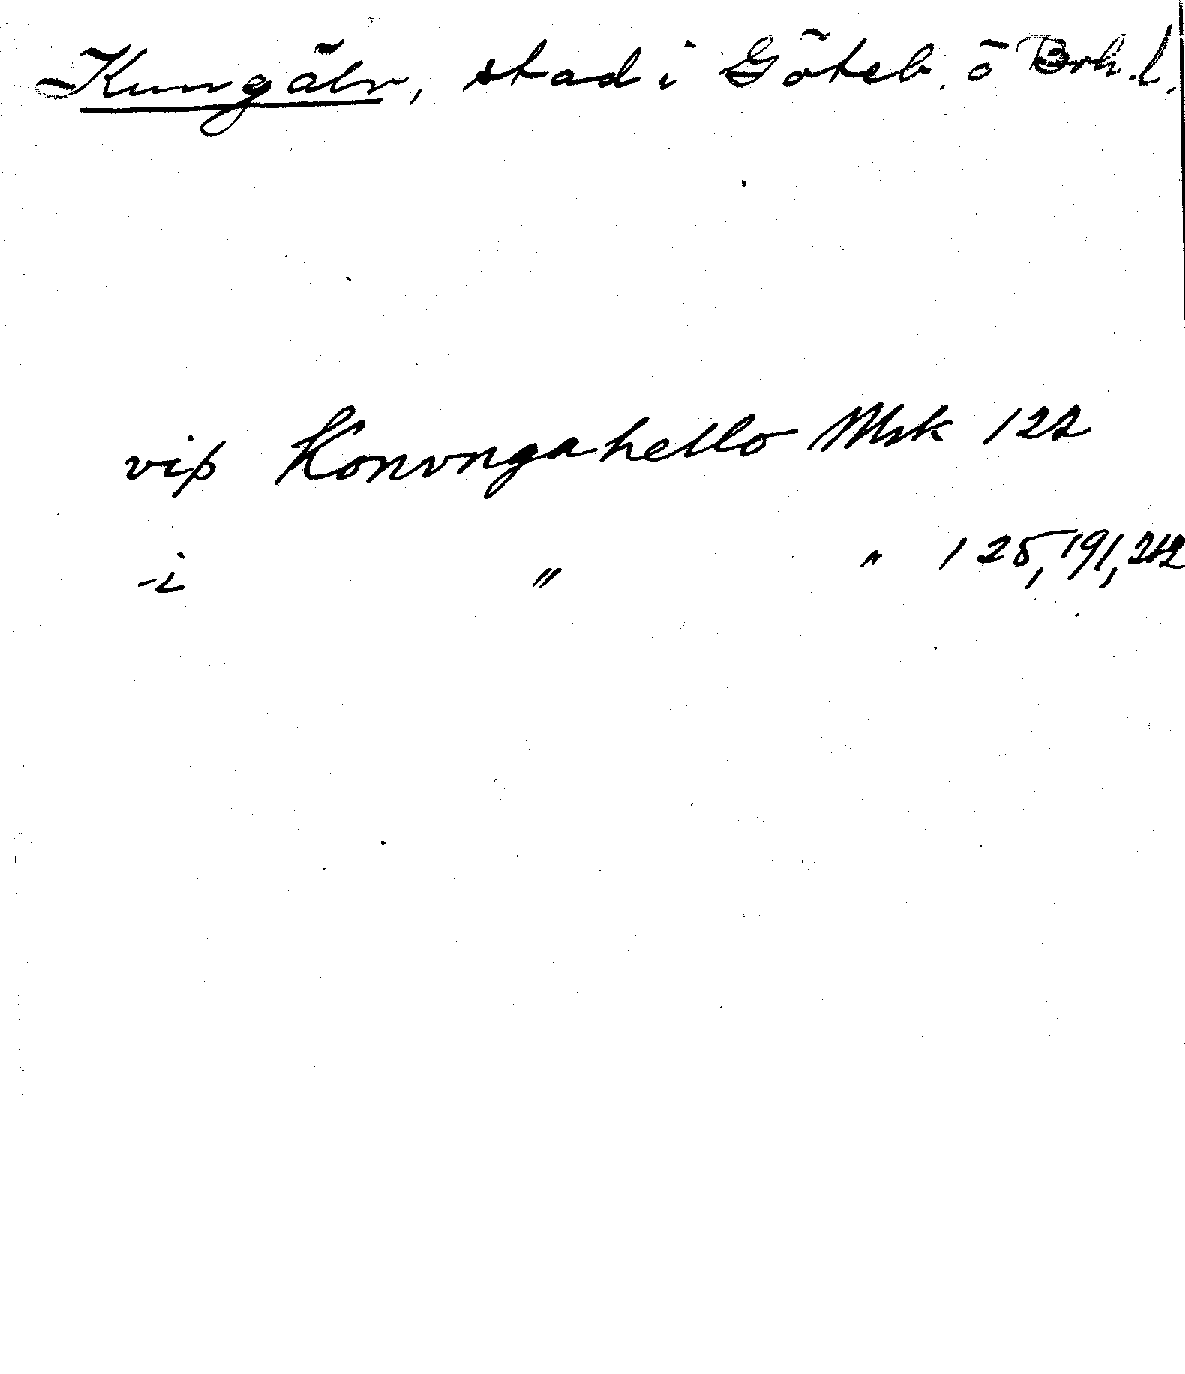 Kungälv, stad i Göteb. o Boh. l.
viþ Konvngahello Msk 122
-i " " 125, 191, 212